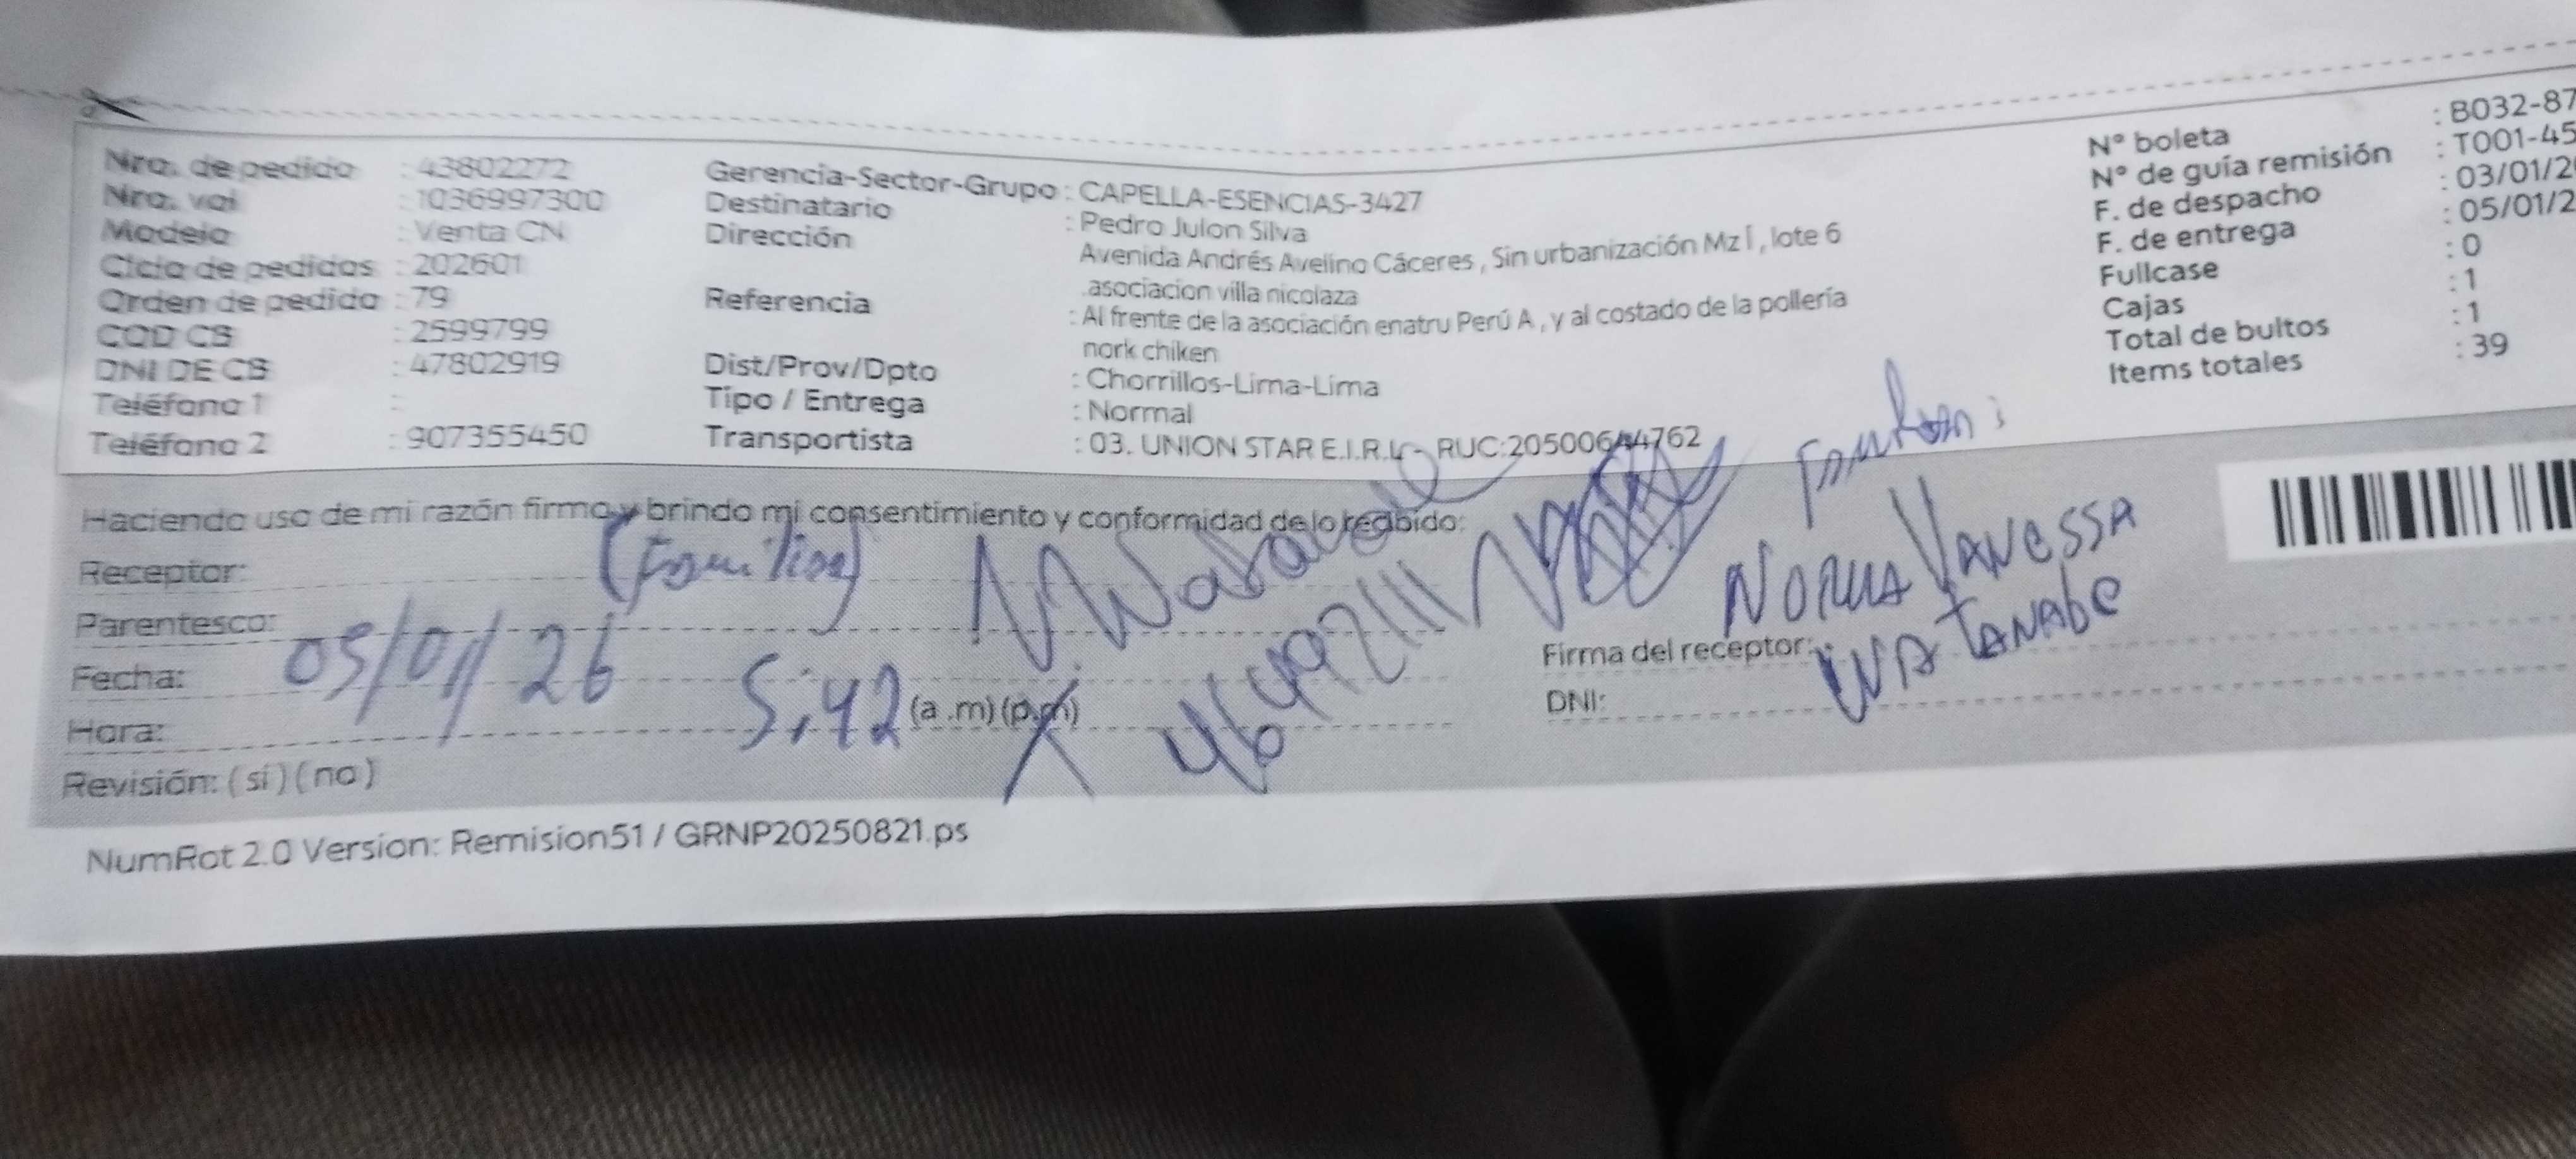 Nro. de pedido : 43802272
Nro. voi : 1036997300
Modelo : Venta CN
Ciclo de pedidos : 202601
Orden de pedido : 79
COD CB : 2599799
DNI DE CB : 47802919
Teléfono 1 :
Teléfono 2 : 907355450
Gerencia-Sector-Grupo : CAPELLA-ESENCIAS-3427
Destinatario : Pedro Julon Silva
Dirección Avenida Andrés Avelino Cáceres , Sin urbanización Mz Í , lote 6
.asociacion villa nicolaza
Referencia : Al frente de la asociación enatru Perú A , y al costado de la pollería
nork chiken
Dist/Prov/Dpto : Chorrillos-Lima-Lima
Tipo / Entrega : Normal
Transportista : 03. UNION STAR E.I.R.L - RUC:20500644762
N° boleta : B032-87
N° de guía remisión : T001-45
F. de despacho : 03/01/2
F. de entrega : 05/01/2
Fullcase : 0
Cajas : 1
Total de bultos : 1
Items totales : 39
Haciendo uso de mi razón firmo y brindo mi consentimiento y conformidad de lo recibido:
Receptor:
Parentesco:
Fecha: 05/01/26
Hora: 5:42 (a .m) (p.m)
Revisión: ( sí ) ( no )
Firma del receptor:
DNI:
Norma Vanessa
Watanabe
NumRot 2.0 Version: Remision51 / GRNP20250821.ps